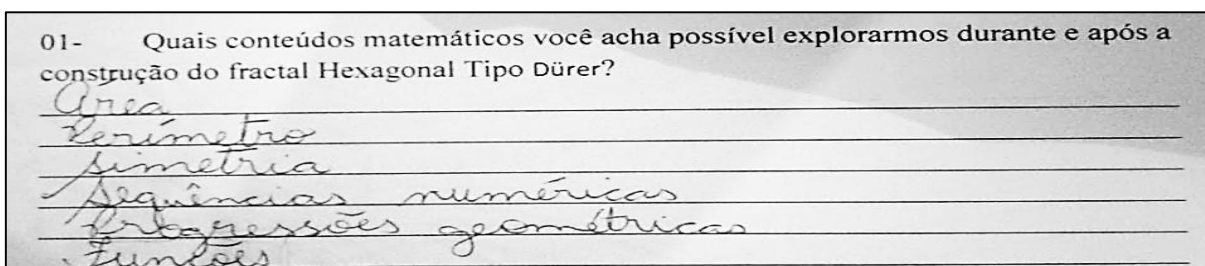 01- Quais conteúdos matemáticos você acha possível explorarmos durante e após a
construção do fractal Hexagonal Tipo Dürer?
Área
Perímetro
Simetria
Sequências numéricas
Progressões geométricas
Funções